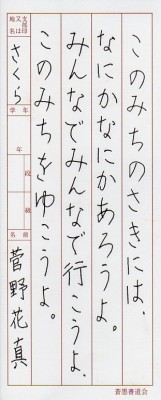 このみちのさきには、
なにかなにかあろうよ。
みんなでみんなで行こうよ、
このみちをゆこうよ。
支部印又は地名
さくら
学年
年
段
級
名前
菅野花真
書墨書道会